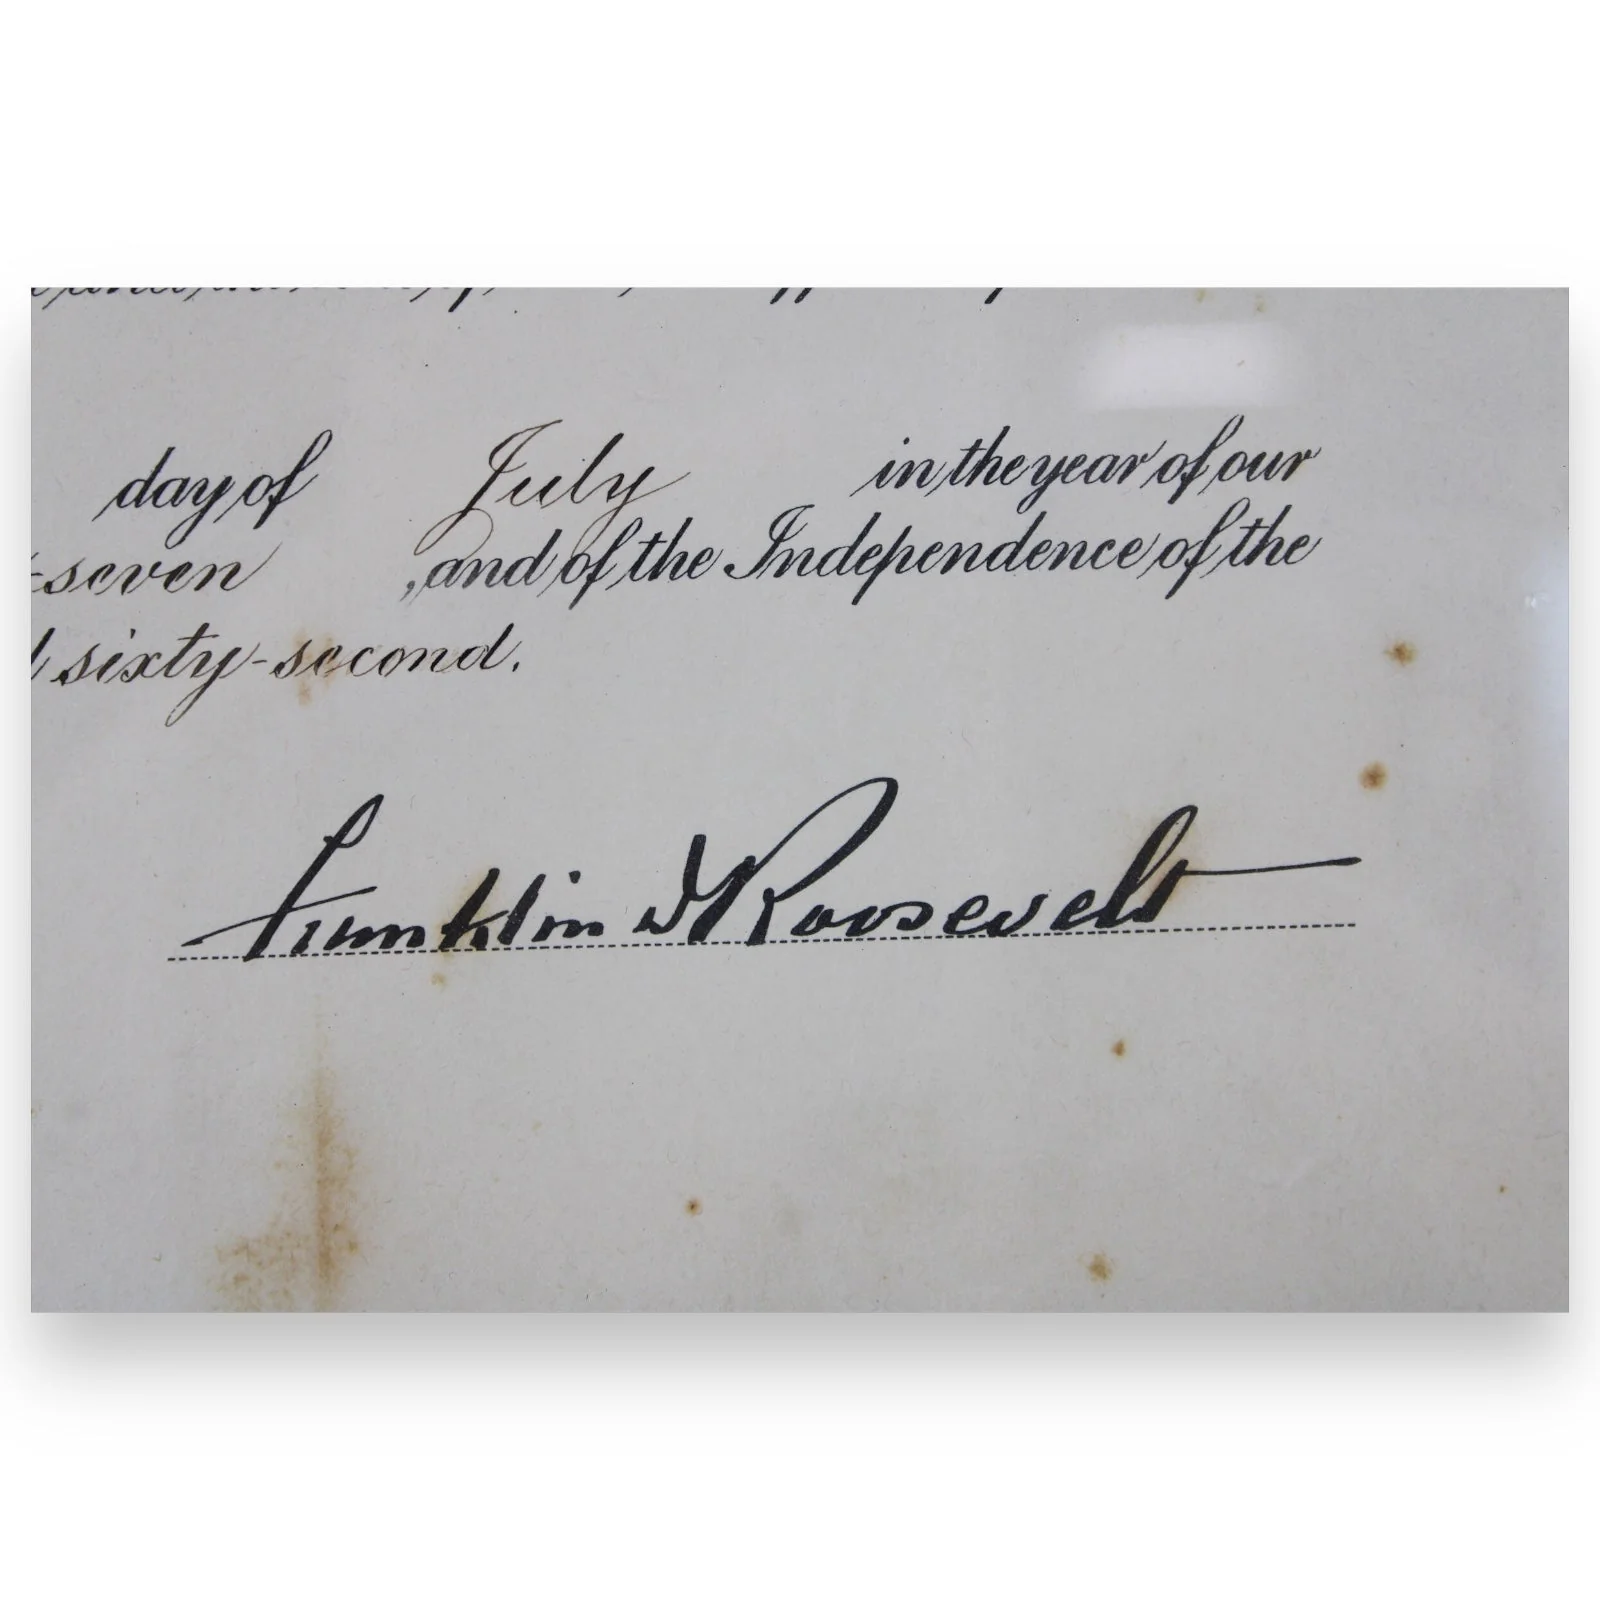 day of July in the year of our
-seven , and of the Independence of the
sixty-second.
Franklin D Roosevelt